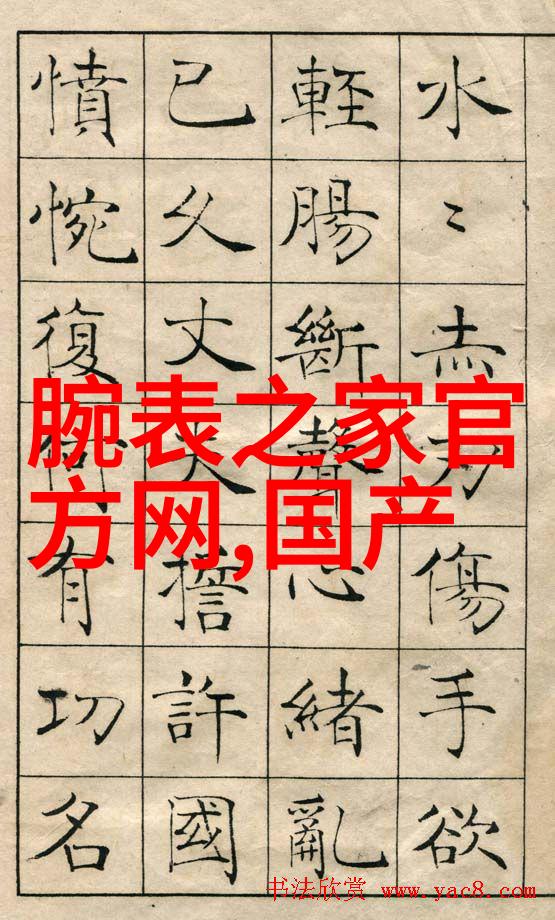 水〻赤刃傷手欲
輕腸斷聲心緒亂
已久丈夫誓許國
憤惋復何有功名
腕表之家官
方网,国产
书法欣赏 www.yac8.com